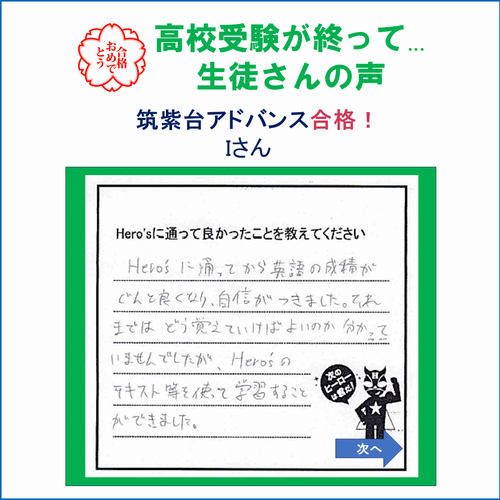 合格
おめで
とう
高校受験が終って…
生徒さんの声
筑紫台アドバンス合格！
Iさん
Hero'sに通って良かったことを教えてください
Hero's に通ってから英語の成績が
ぐんと良くなり、自信がつきました。それ
までは どう覚えていけばよいのか 分かって
いませんでしたが、Hero'sの
テキスト等を使って学習すること
ができました。
次の
ヒーロー
は君だ!
H
次へ